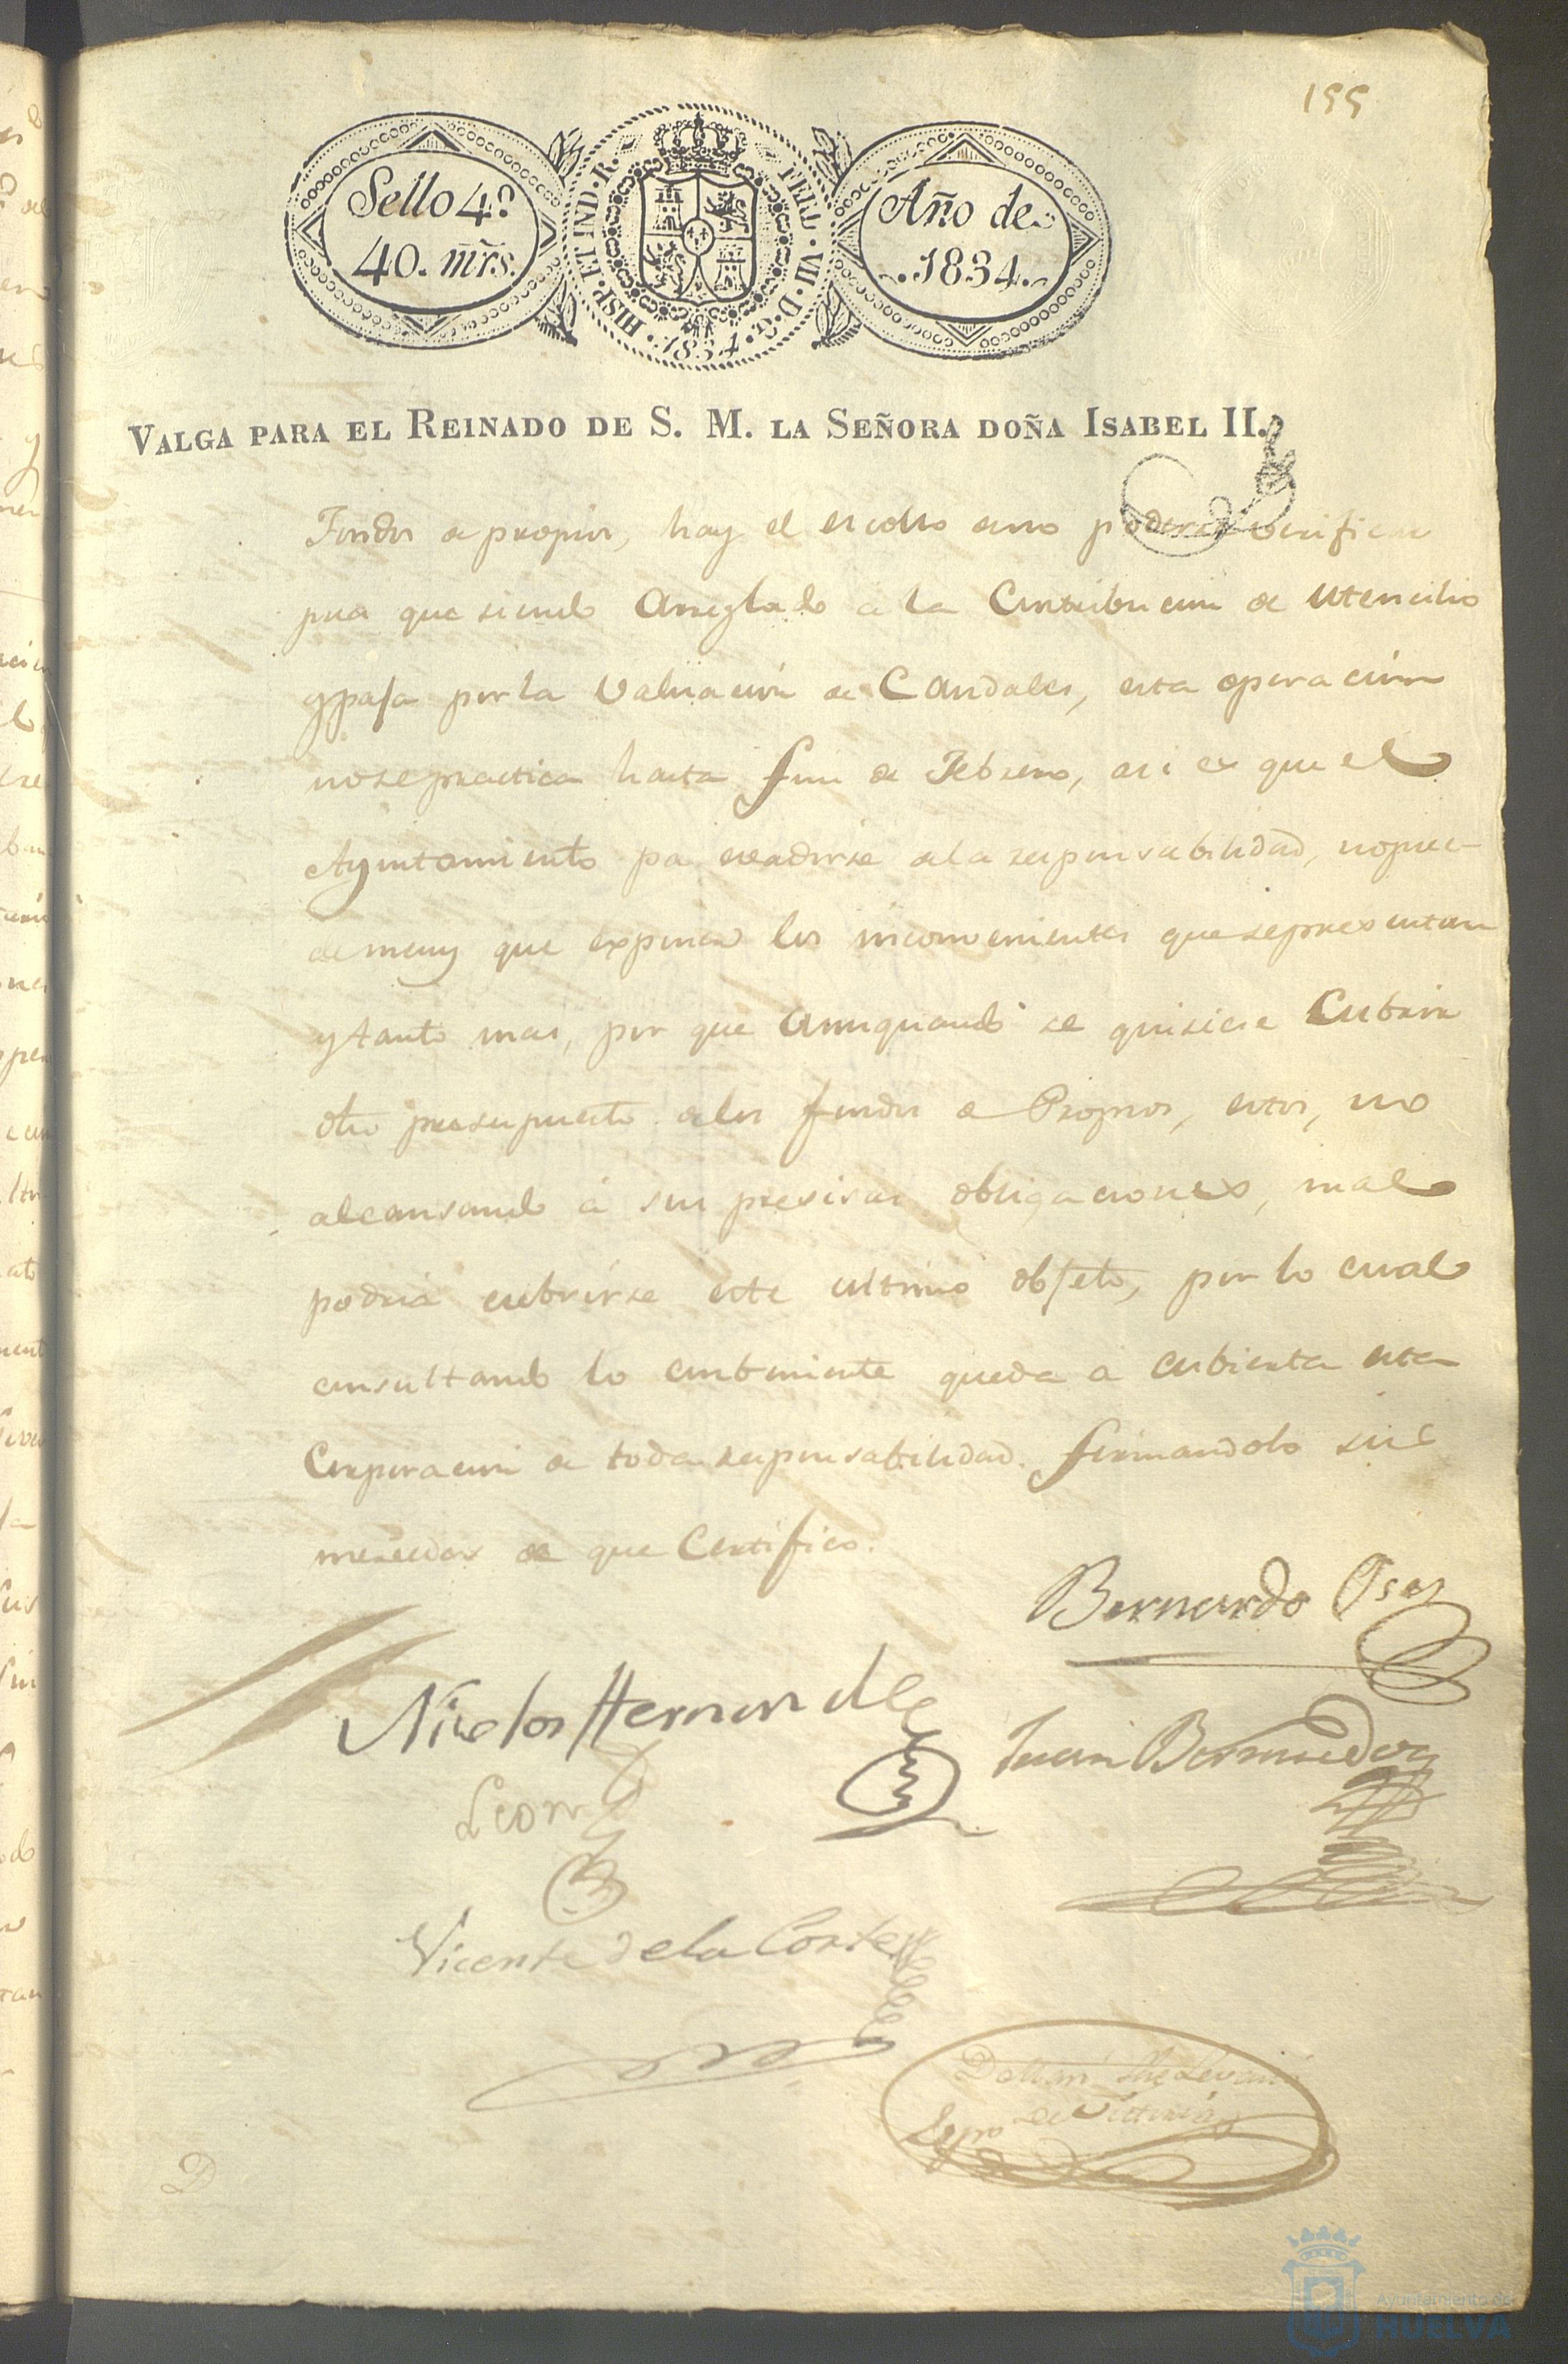 155
Sello 4º
40. mrs.
HISP. ET IND. R.
FERD. VII. D. G.
1834.
Año de
1834.
VALGA PARA EL REINADO DE S. M. LA SEÑORA DOÑA ISABEL II.
Fondos de propios, hay el escollo de no poderse verificar
pues que siendo arreglado á la Contribucion de Utencilios
y paja por la valuacion de Caudales, esta operacion
no se practica hasta fin de Febrero, asi es que el
Ayuntamiento pa evadirse dela responsabilidad, no pue-
de menos que exponer los inconvenientes que se presentan
y tanto mas, por que aunquando se quisiere Cubrir
dho presupuesto delos fondos de Propios, estos, no
alcansando á sus precisas obligaciones, mal
podria cubrirse este ultimo objeto, por lo cual
consultando lo combeniente queda á cubierta esta
Corporacion de toda responsabilidad. firmandolo sus
mersedes de que Certifico.
Bernardo
Nicolas Hernandez
Juan Bermudez
Leon
Vicente de la Corte
D
Ayuntamiento de
HUELVA